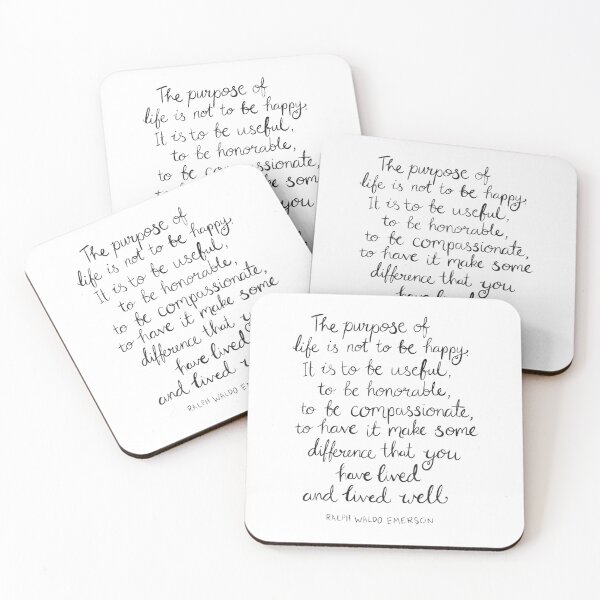 The purpose of
life is not to be happy.
It is to be useful,
to be honorable,
to be compassionate,
make some
you
The purpose of
life is not to be happy.
It is to be useful,
to be honorable,
to be compassionate,
to have it make some
difference that you
have lived
The purpose of
life is not to be happy.
It is to be useful,
to be honorable,
to be compassionate,
to have it make some
difference that
have lived
and lived
RALPH WALDO
The purpose of
life is not to be happy.
It is to be useful,
to be honorable,
to be compassionate,
to have it make some
difference that you
have lived
and lived well
RALPH WALDO EMERSON